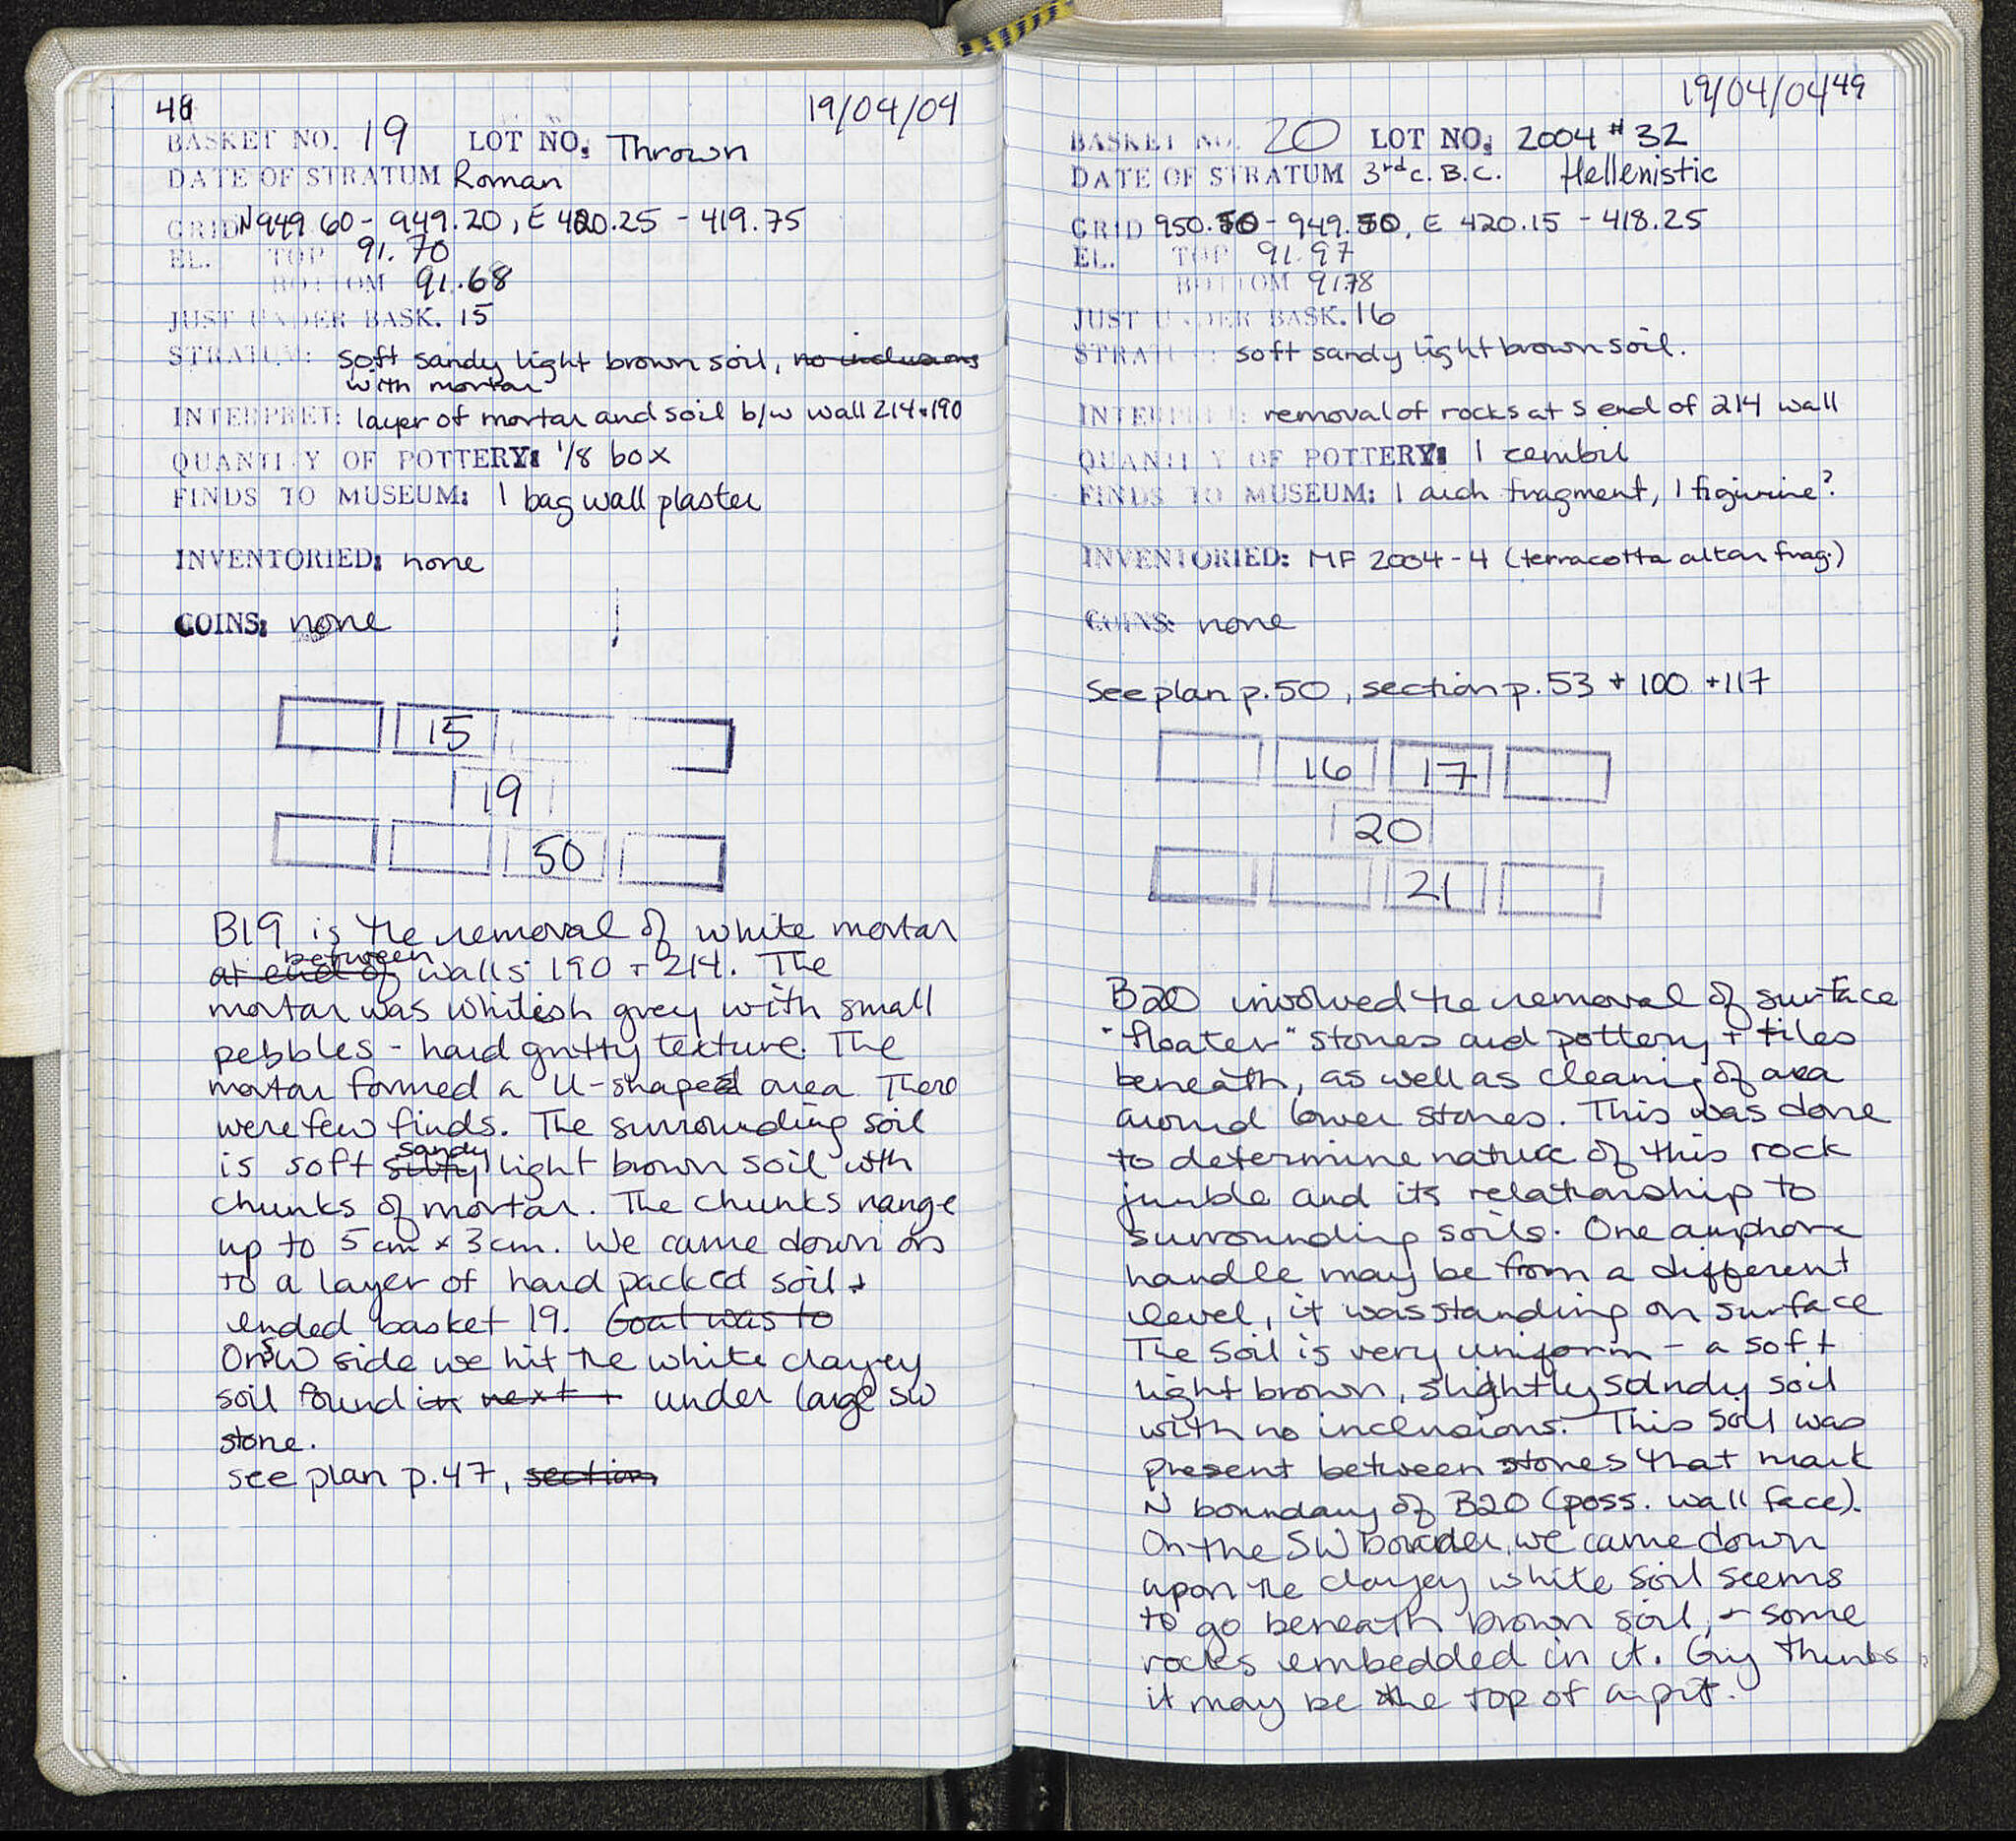 48
19/04/04
BASKET NO. 19 LOT NO: Thrown
DATE OF STRATUM Roman
GRID N949.60 - 949.20, E 420.25 - 419.75
EL. TOP 91.70
BOTTOM 91.68
JUST UNDER BASK. 15
STRATUM: soft sandy light brown soil, no inclusions
with mortar
INTERPRET: layer of mortar and soil b/w wall 214+190
QUANTITY OF POTTERY: 1/8 box
FINDS TO MUSEUM: 1 bag wall plaster
INVENTORIED: none
COINS: none
15
19
50
B19 is the removal of white mortar
at end of between walls 190 + 214. The
mortar was whitish grey with small
pebbles - hard gritty texture. The
mortar formed a U-shaped area. There
were few finds. The surrounding soil
is soft silty sandy light brown soil with
chunks of mortar. The chunks range
up to 5cm x 3cm. We came down on
to a layer of hard packed soil +
ended basket 19. Goal was to
On SW side we hit the white clayey
soil found in next + under large SW
stone.
see plan p.47, section
19/04/04 49
BASKET NO. 20 LOT NO: 2004 #32
DATE OF STRATUM 3rd c. B.C. Hellenistic
GRID 950.50 - 949.50, E 420.15 - 418.25
EL. TOP 91.97
BOTTOM 91.78
JUST UNDER BASK. 16
STRATUM: soft sandy light brown soil.
INTERPRET: removal of rocks at S end of 214 wall
QUANTITY OF POTTERY: 1 zembil
FINDS TO MUSEUM: 1 arch fragment, 1 figurine?
INVENTORIED: MF 2004-4 (terracotta altar frag.)
COINS: none
see plan p.50, section p.53 + 100 + 117
16 17
20
21
B20 involved the removal of surface
"floater" stones and pottery + tiles
beneath, as well as cleaning of area
around lower stones. This was done
to determine nature of this rock
jumble and its relationship to
surrounding soils. One amphora
handle may be from a different
level, it was standing on surface
The soil is very uniform - a soft
light brown, slightly sandy soil
with no inclusions. This soil was
present between stones that mark
N boundary of B20 (poss. wall face).
On the SW border we came down
upon the clayey white soil seems
to go beneath brown soil, + some
rocks embedded in it. Guy thinks
it may be the top of a pit.